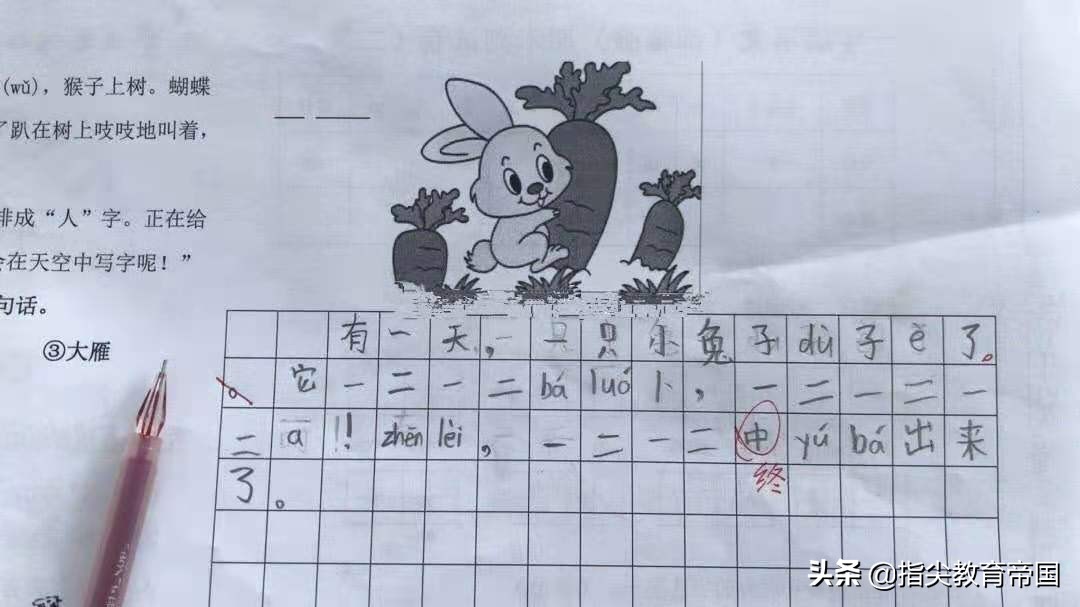 (wǔ)，猴子上树。蝴蝶
了趴在树上吱吱地叫着，
排成“人”字。正在给
会在天空中写字呢！”
句话。
③大雁
有一天，一只只小兔子dù子è了。
它一二一二bá luó卜，一二一二一
二a!! zhēn lèi，一二一二中yú bá出来
终
了。
头条 @指尖教育帝国